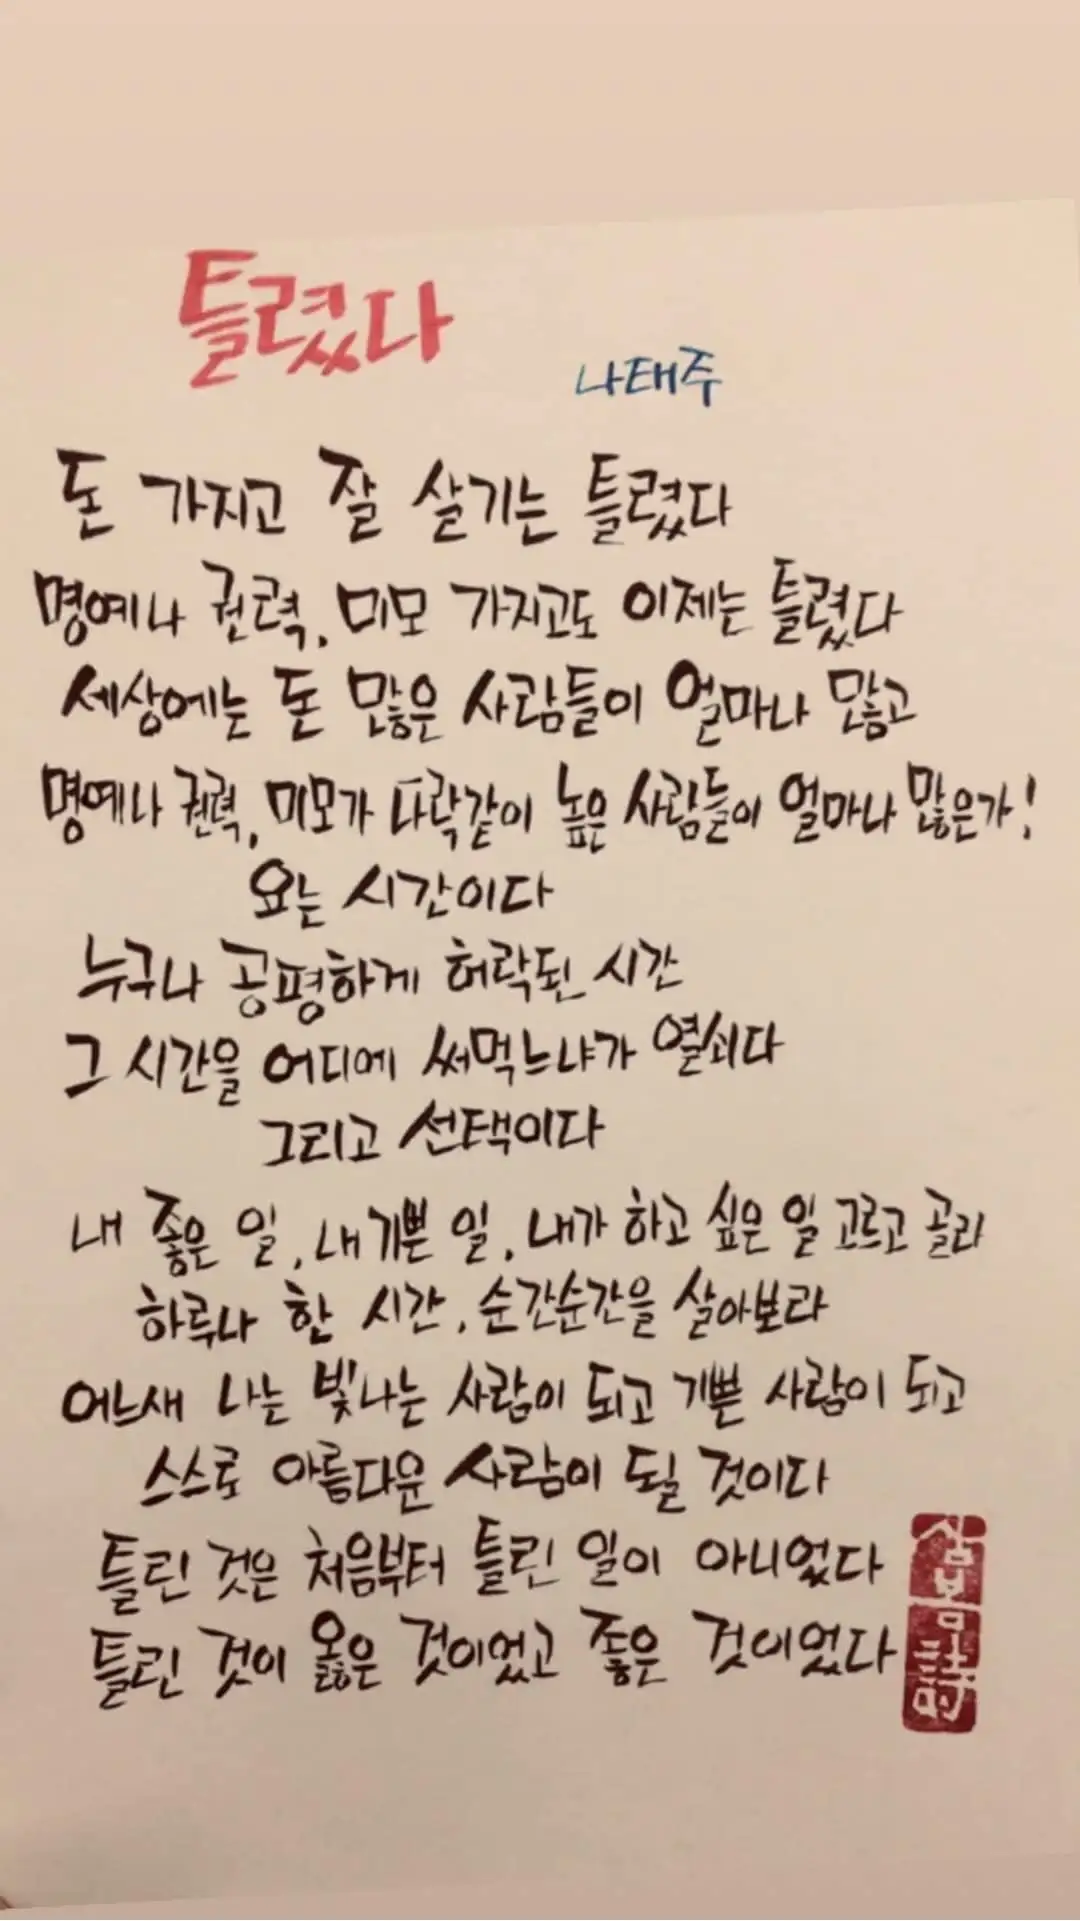 틀렸다
나태주
돈 가지고 잘 살기는 틀렸다
명예나 권력, 미모 가지고도 이제는 틀렸다
세상에는 돈 많은 사람들이 얼마나 많고
명예나 권력, 미모가 다락같이 높은 사람들이 얼마나 많은가!
요는 시간이다
누구나 공평하게 허락된 시간
그 시간을 어디에 써먹느냐가 열쇠다
그리고 선택이다
내 좋은 일, 내 기쁜 일, 내가 하고 싶은 일 고르고 골라
하루나 한 시간, 순간순간을 살아보라
어느새 나는 빛나는 사람이 되고 기쁜 사람이 되고
스스로 아름다운 사람이 될 것이다
틀린 것은 처음부터 틀린 일이 아니었다
틀린 것이 옳은 것이었고 좋은 것이었다
심봄詩